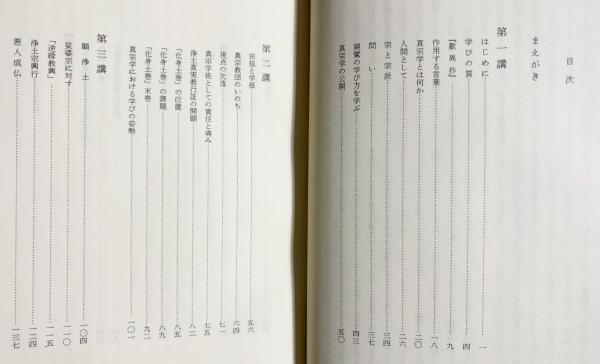 目次
まえがき
第一講
はじめに……一
学びの質……四
『歎異抄』……九
作用する言葉……一八
真宗学とは何か……二〇
人間として……二六
宗と宗派……三四
問い……三七
親鸞の学び方を学ぶ……四三
真宗学の公開……五〇
第二講
宗祖と学祖……五六
真宗教団のいのち……六四
視点の欠落……七一
真宗学徒としての責任と痛み……七五
浄土真実教行証の開顕……八二
「化身土巻」の位置……八五
「化身土巻」の課題……八九
「化身土巻」末巻……九二
真宗学における学びの姿勢……一〇一
第三講
顕浄土……一〇四
娑婆宗に対す……一一〇
「逆縁教興」……一一五
浄土宗興行……一二四
悪人成仏……一三七